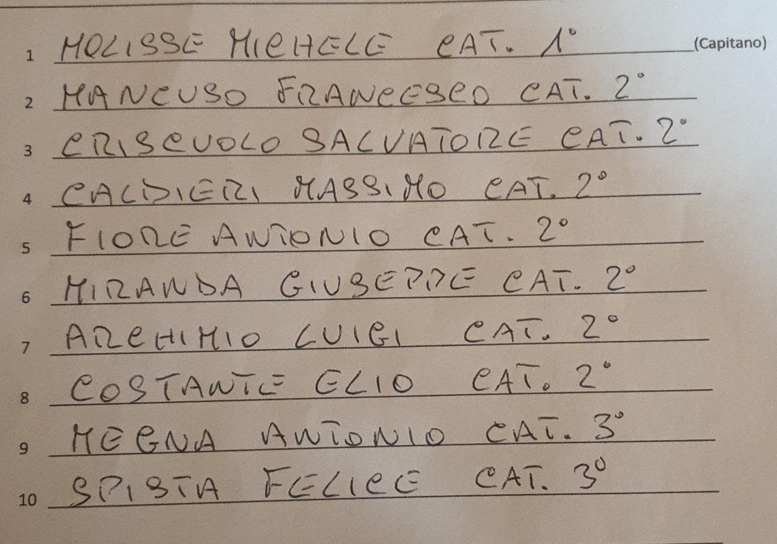 1 MOLISSE MICHELE CAT. 1° (Capitano)
2 MANCUSO FRANCESCO CAT. 2°
3 CRISCUOLO SALVATORE CAT. 2°
4 CALDIERI MASSIMO CAT. 2°
5 FIORE ANTONIO CAT. 2°
6 MIRANDA GIUSEPPE CAT. 2°
7 ARCHIMIO LUIGI CAT. 2°
8 COSTANTE ELIO CAT. 2°
9 MEGNA ANTONIO CAT. 3°
10 SPISTA FELICE CAT. 3°